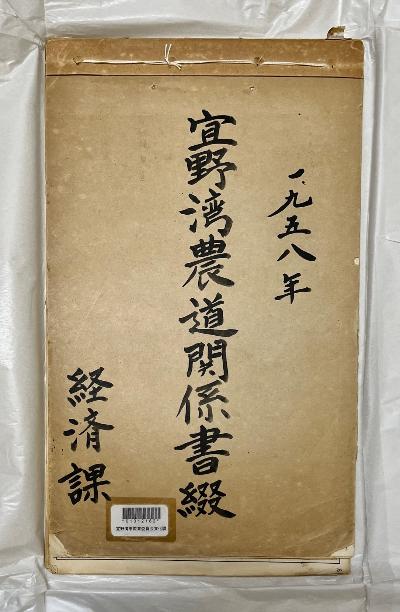 一九五八年
宜野湾農道関係書綴
経済課